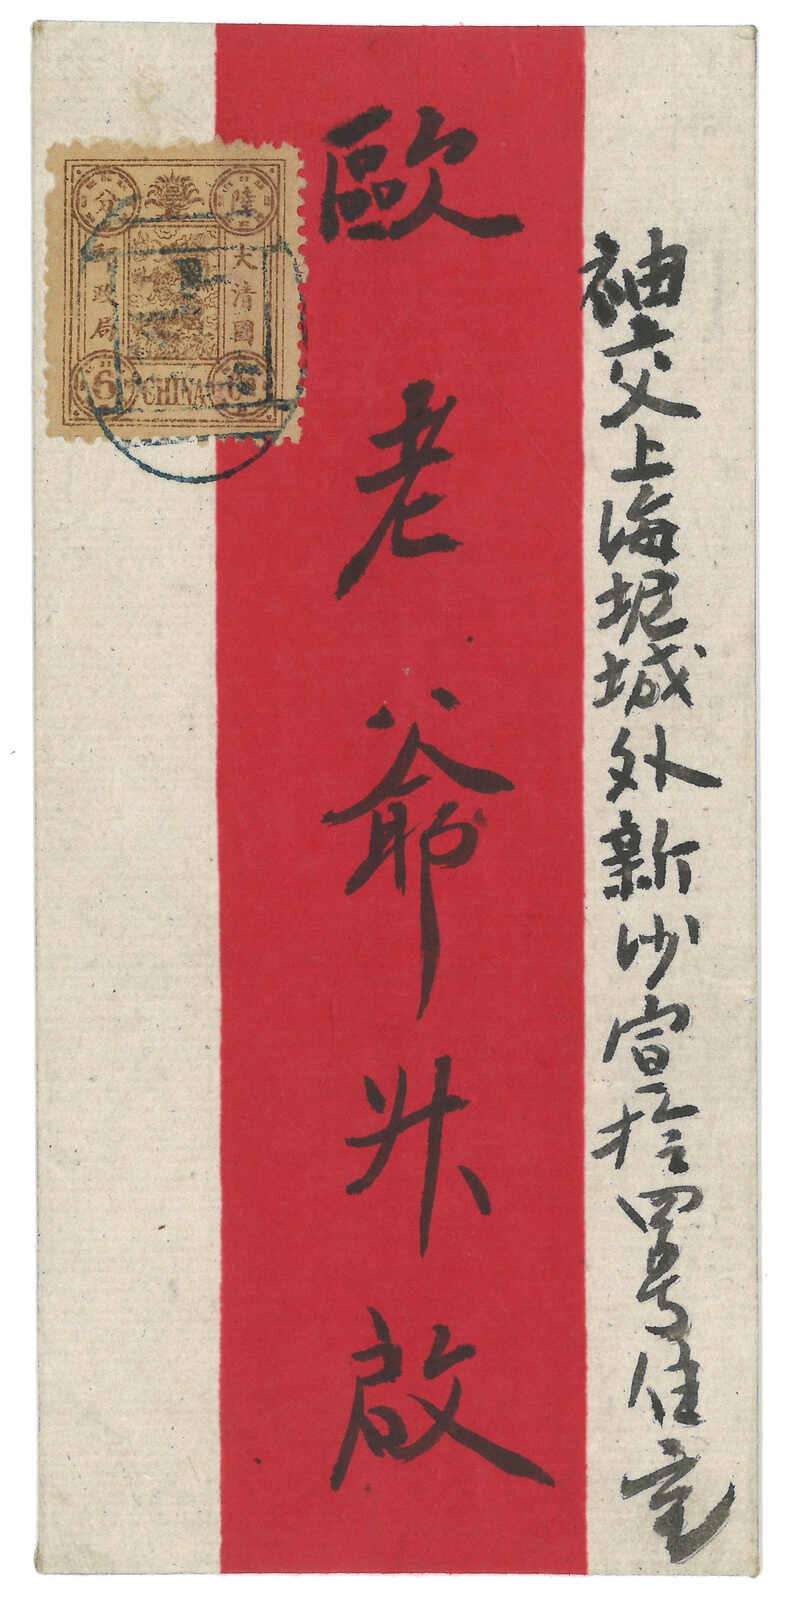 袖交上海坭城外新沙宣拾四号住宅
歐老爺升啟
陸分
大清國
郵政局
6 CHINA 6